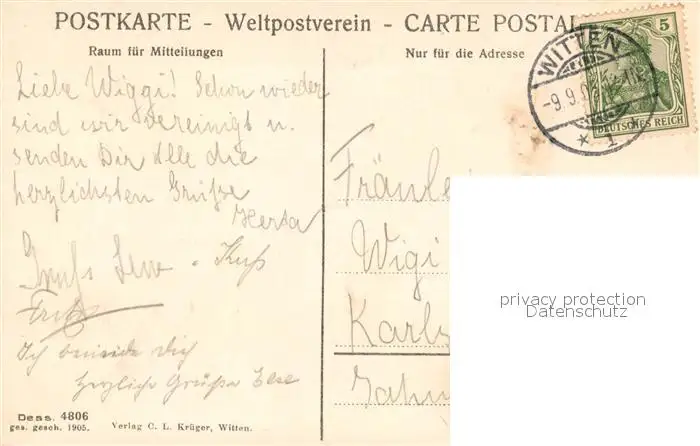 POSTKARTE - Weltpostverein - CARTE POSTAL
Raum für Mitteilungen
Nur für die Adresse
WITTEN
-9.9.0
* 1 *
5
DEUTSCHES REICH
Liebe Wiggi! Schon wieder
sind wir vereinigt u.
senden Dir Alle die
herzlichsten Grüße
Herta
Gruß - Kuß
Fritz
Ich beneide Dich
herzliche Grüße Else
Fräulei
Wigi
Karls
privacy protection
Datenschutz
Dess. 4806
ges. gesch. 1905.
Verlag C. L. Krüger, Witten.